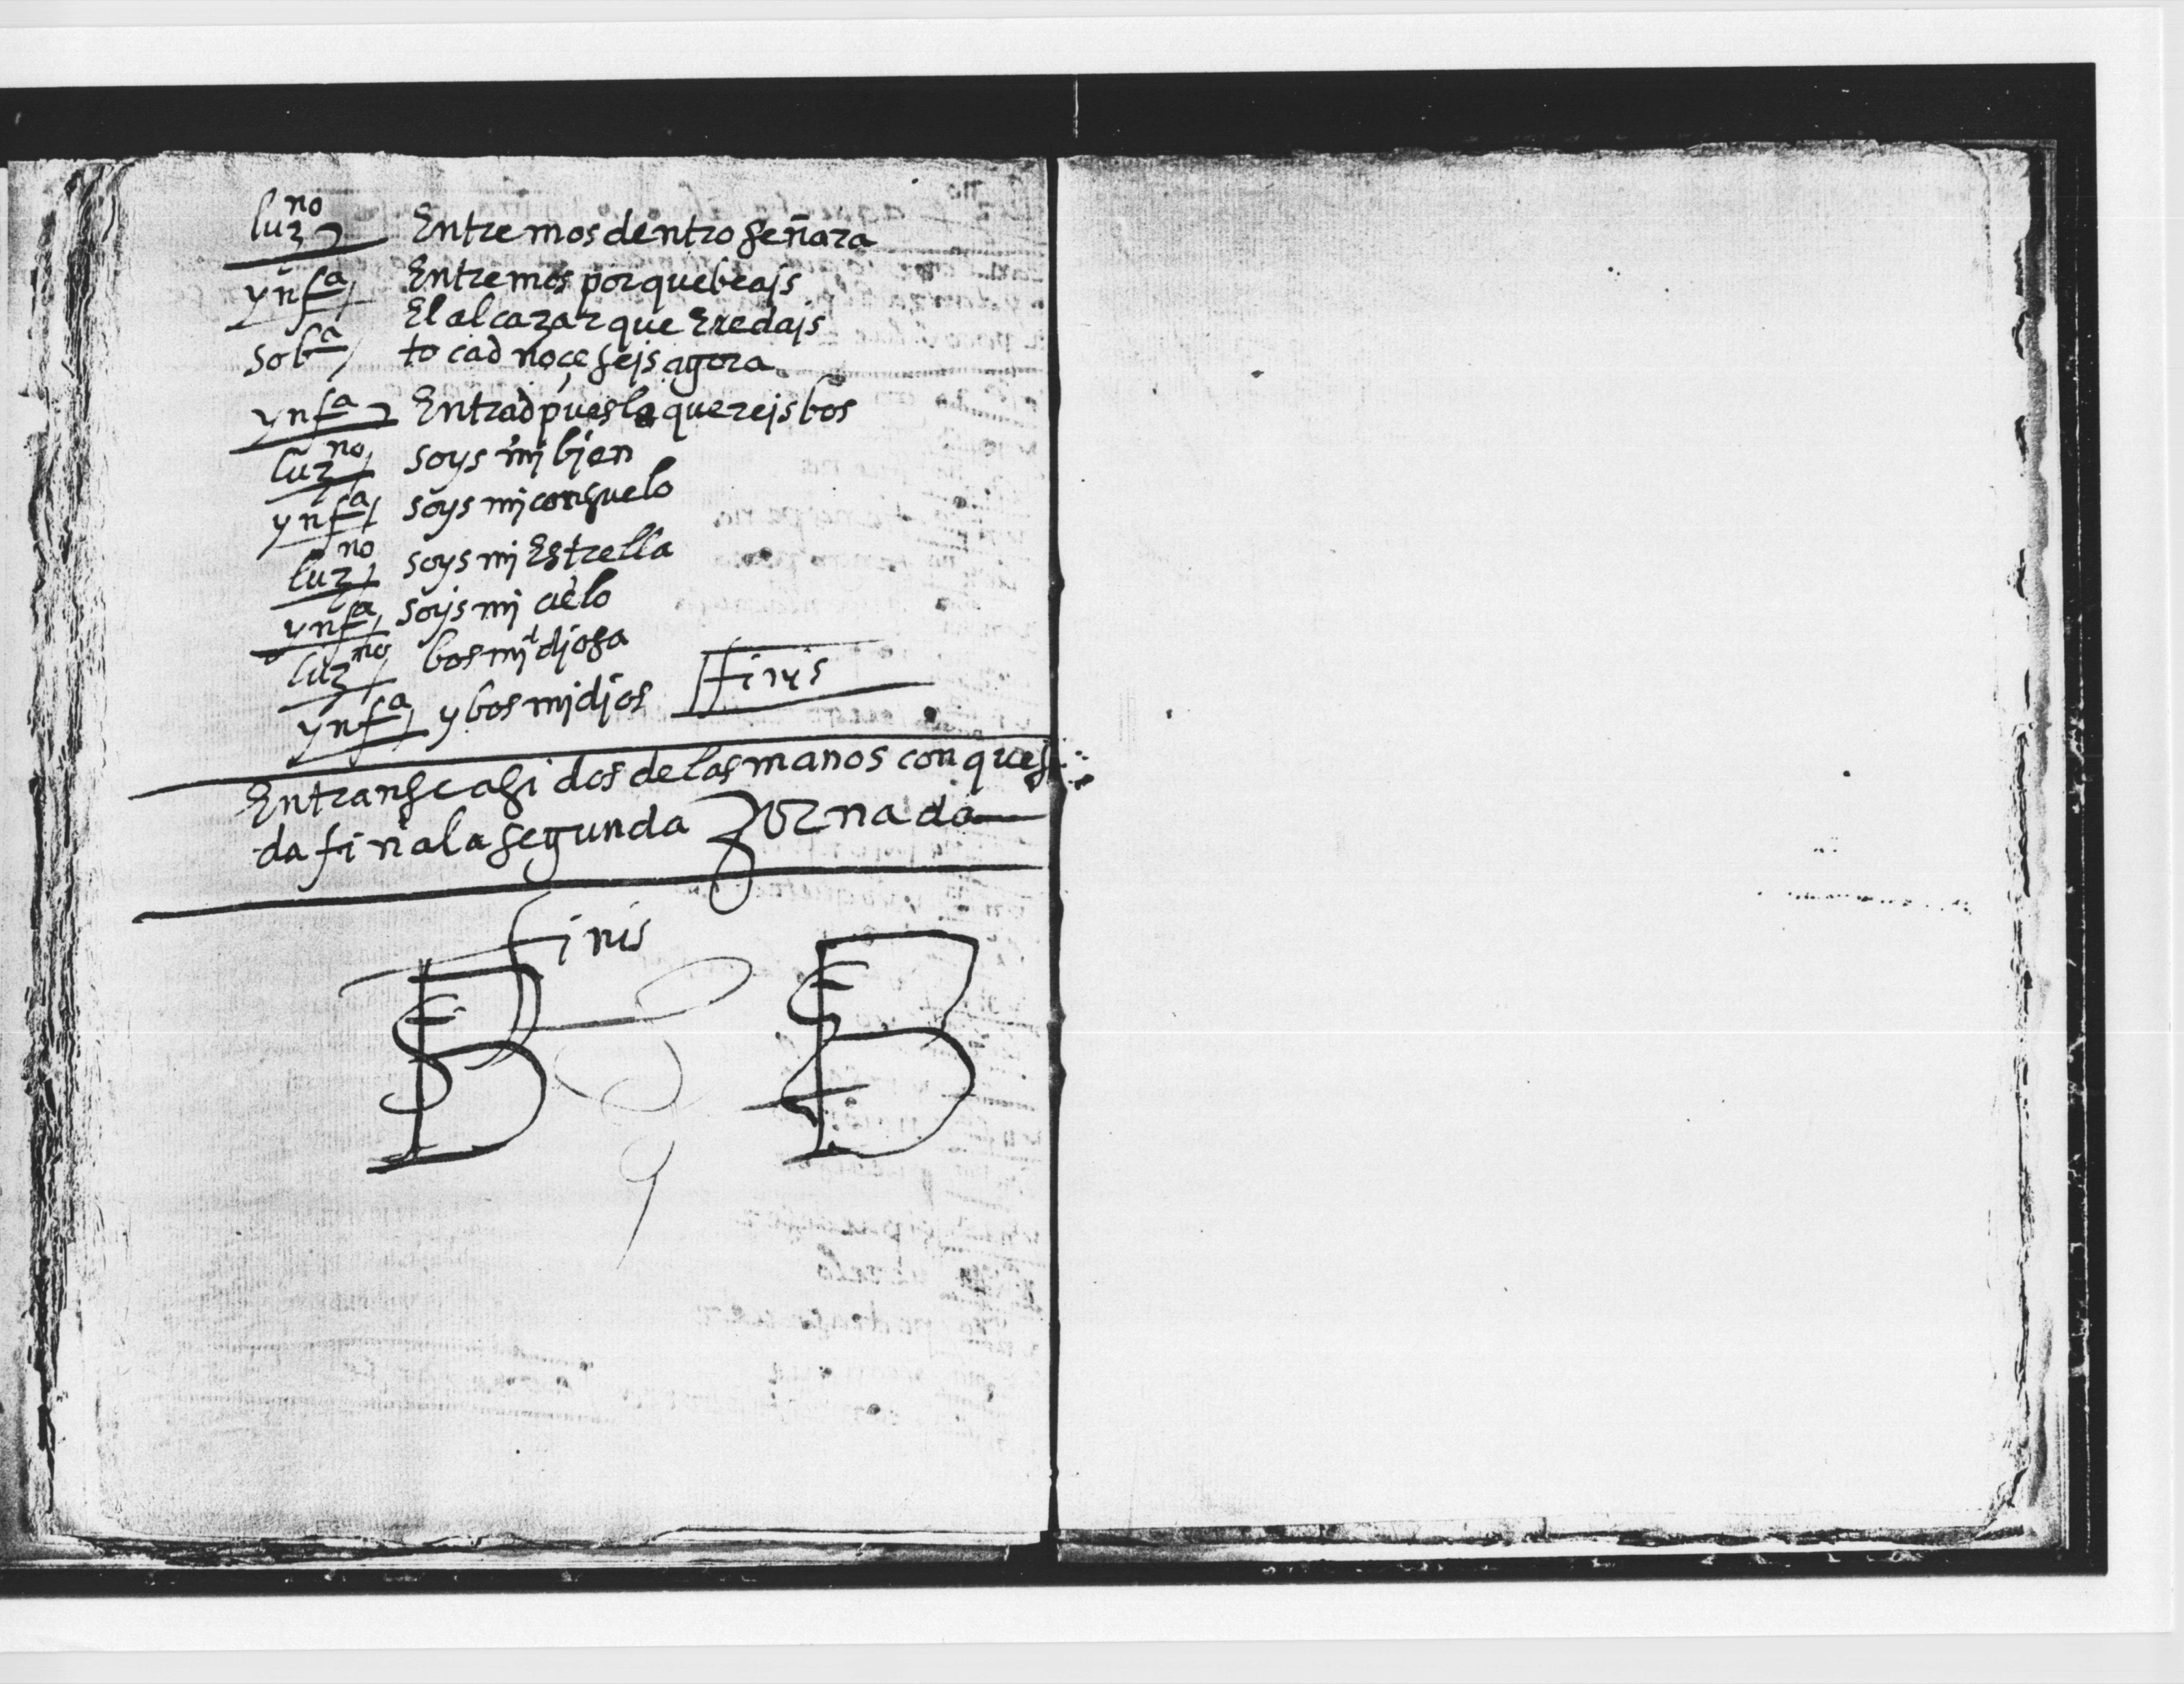 luzno Entremos dentro señora
ynfa Entremos porque beajs
El alcazar que Eredajs
soba tocad no çesejs agora
ynfa Entrad pues lo querejs bos
luzno soys mj bjen
ynfa soys mj consuelo
luzno soys mj Estrella
ynfa soys mj cielo
luzno bos mj djosa
ynfa y bos mj djos finis
Entranse asidos de las manos con que se
da fin a la segunda Jornada
finis